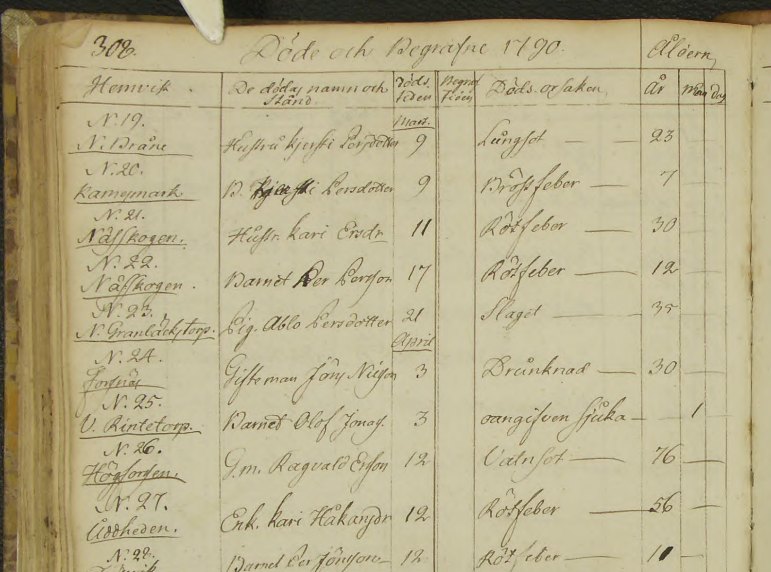 308. Döde och Begrafne 1790. Åldern
Hemvist. De dödas namn och Stånd. Döds tiden Begraf tiden Döds orsaken År Mån Dag
N. 19. Mart.
N. Bråne Hustru Kjersti Persdotter 9 Lungsot 23
N. 20.
B. Persdotter 9 Bröstfeber 7
N. 21.
Nässkogen. Hustr. Kari Ersdr 11 Rötfeber 30
N. 22.
Nässkogen. Barnet Per Persson 17 Rötfeber 12
N. 23.
N. Pig. Persdotter 21 Slaget 35
April
N. 24.
Forsnäs Gifte man Jöns Nilsson 3 Drunknad 30
N. 25
V. Rintetorp. Barnet Olof Jonas. 3 oangifven Sjuka 1
N. 26.
Högforsen. G.m. Ragvald Ersson 12 Vatnsot 76
N. 27.
Enk. Kari Håkansdr 12 Rötfeber 56
N. 28.
Barnet Per Jönsson 12 Rötfeber 11